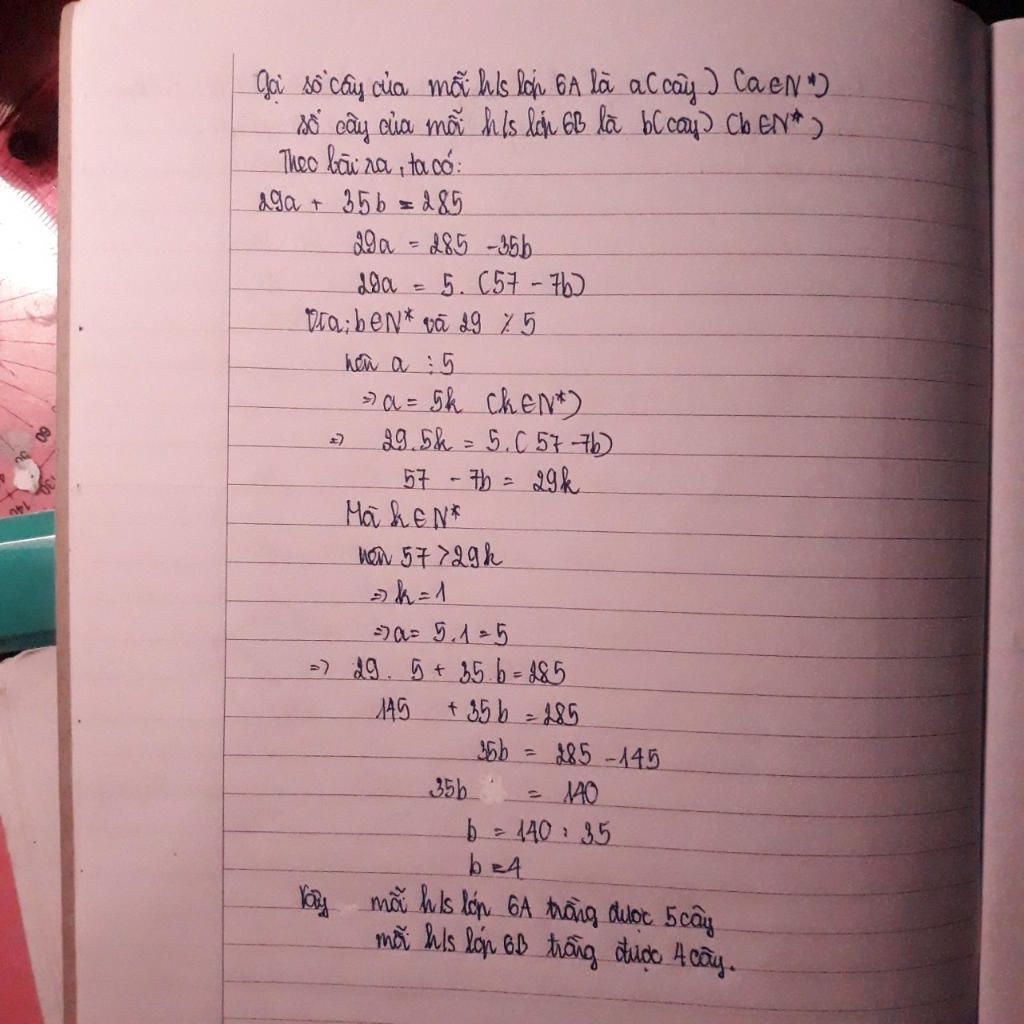 Gọi số cây của mỗi h/s lớp 6A là a(cây) (a∈N*)
số cây của mỗi h/s lớp 6B là b(cây) (b∈N*)
Theo bài ra, ta có:
29a + 35b = 285
29a = 285 - 35b
29a = 5. (57 - 7b)
Vì a; b∈N* và 29 ⋮̸ 5
nên a ⋮ 5
⇒ a = 5k (k∈N*)
⇒ 29.5k = 5.(57 - 7b)
57 - 7b = 29k
Mà k∈N*
nên 57 > 29k
⇒ k = 1
⇒ a = 5.1 = 5
⇒ 29. 5 + 35.b = 285
145 + 35b = 285
35b = 285 - 145
35b = 140
b = 140 : 35
b = 4
Vậy mỗi h/s lớp 6A trồng được 5 cây
mỗi h/s lớp 6B trồng được 4 cây.